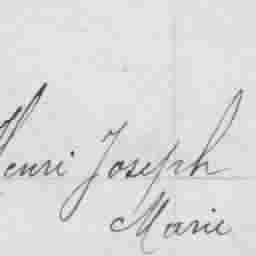 Henri Joseph
Marie